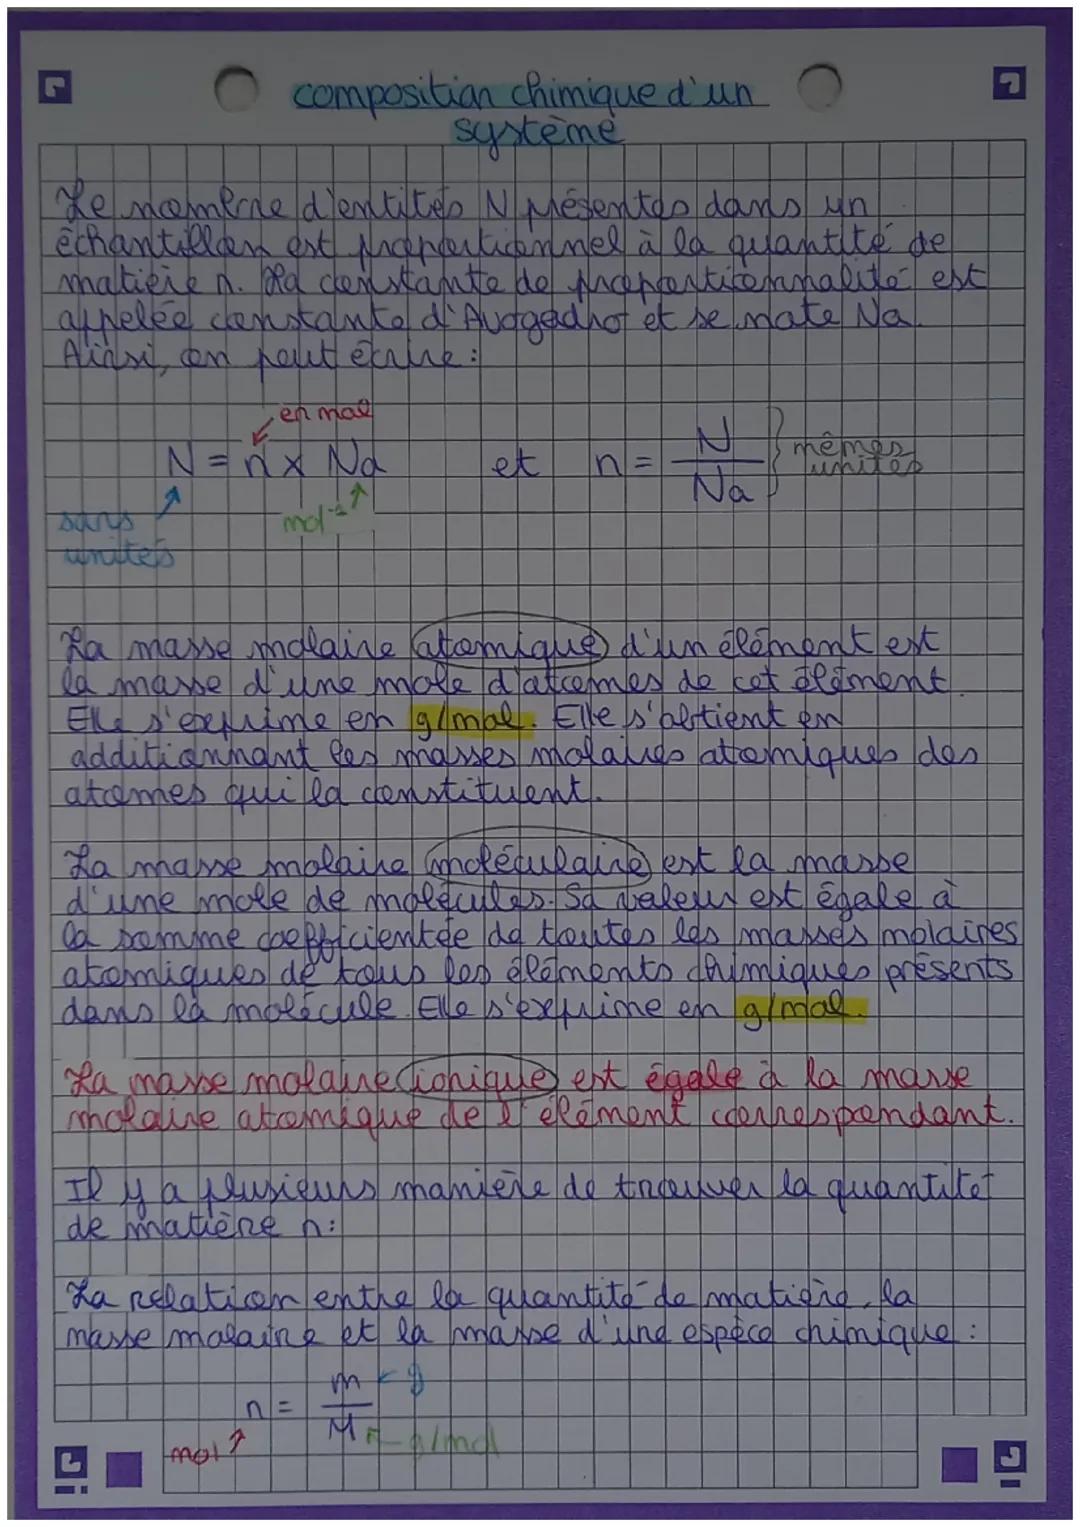 composition chimique d'un
système
Le nombre d'entités N présentes dans un
échantillon est proportionnel à la quantité de
matière n. La constante de proportionnalité est
appelée constante d'Avogadrot et se note Na.
Ainsi, on peut écrire :
en mol
N = n x Na et n = N / Na } mêmes unités
sans
unités
mol⁻¹
La masse molaire atomique d'un élément est
la masse d'une mole d'atomes de cet élément.
Elle s'exprime en g/mol. Elle s'obtient en
additionnant les masses molaires atomiques des
atomes qui la constituent.
La masse molaire moléculaire est la masse
d'une mole de molécules. Sa valeur est égale à
la somme coefficientée de toutes les masses molaires
atomiques de tous les éléments chimiques présents
dans la molécule. Elle s'exprime en g/mol.
La masse molaire ionique est égale à la masse
molaire atomique de l'élément correspondant.
Il y a plusieurs manière de trouver la quantité
de matière n :
La relation entre la quantité de matière, la
masse molaire et la masse d'une espèce chimique :
n = m / M
g
mol
g/mol